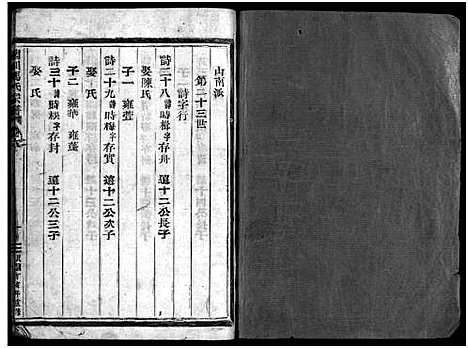 山南派
第二十三世
詩字行
詩二十八 時梅字存舟 遠十二公長子
娶陳氏
子一 雍萱
詩二十九 時梅字存實 遠十二公次子
娶 氏
子二 雍華 雍蓬
詩三十 時松字存封 遠十二公三子
娶 氏